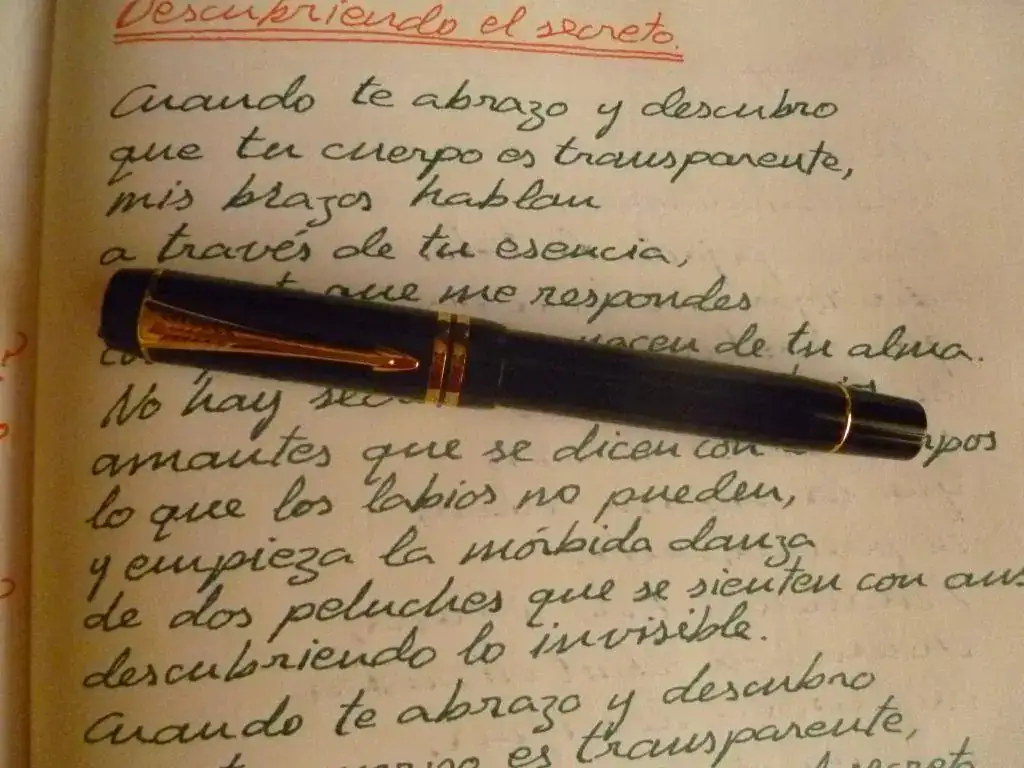 Descubriendo el secreto.
Cuando te abrazo y descubro
que tu cuerpo es transparente,
mis brazos hablan
a través de tu esencia,
que me respondes
nacen de tu alma.
No hay
amantes que se dicen con
lo que los labios no pueden,
y empieza la mórbida danza
de dos peluches que se sienten con
descubriendo lo invisible.
Cuando te abrazo y descubro
es transparente,
secreto